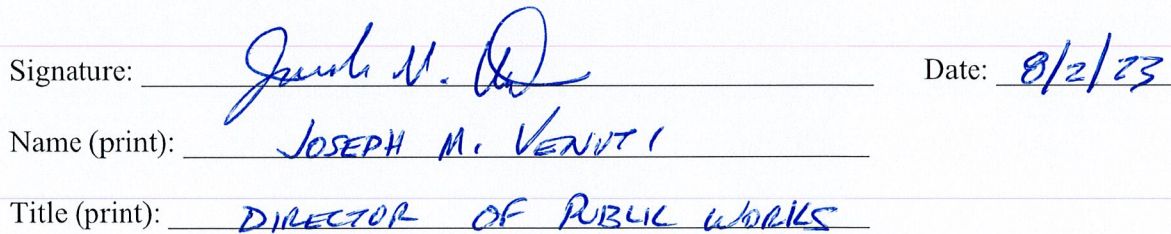 Signature: Date: 8/2/23
Name (print): JOSEPH M. VENUTI
Title (print): DIRECTOR OF PUBLIC WORKS